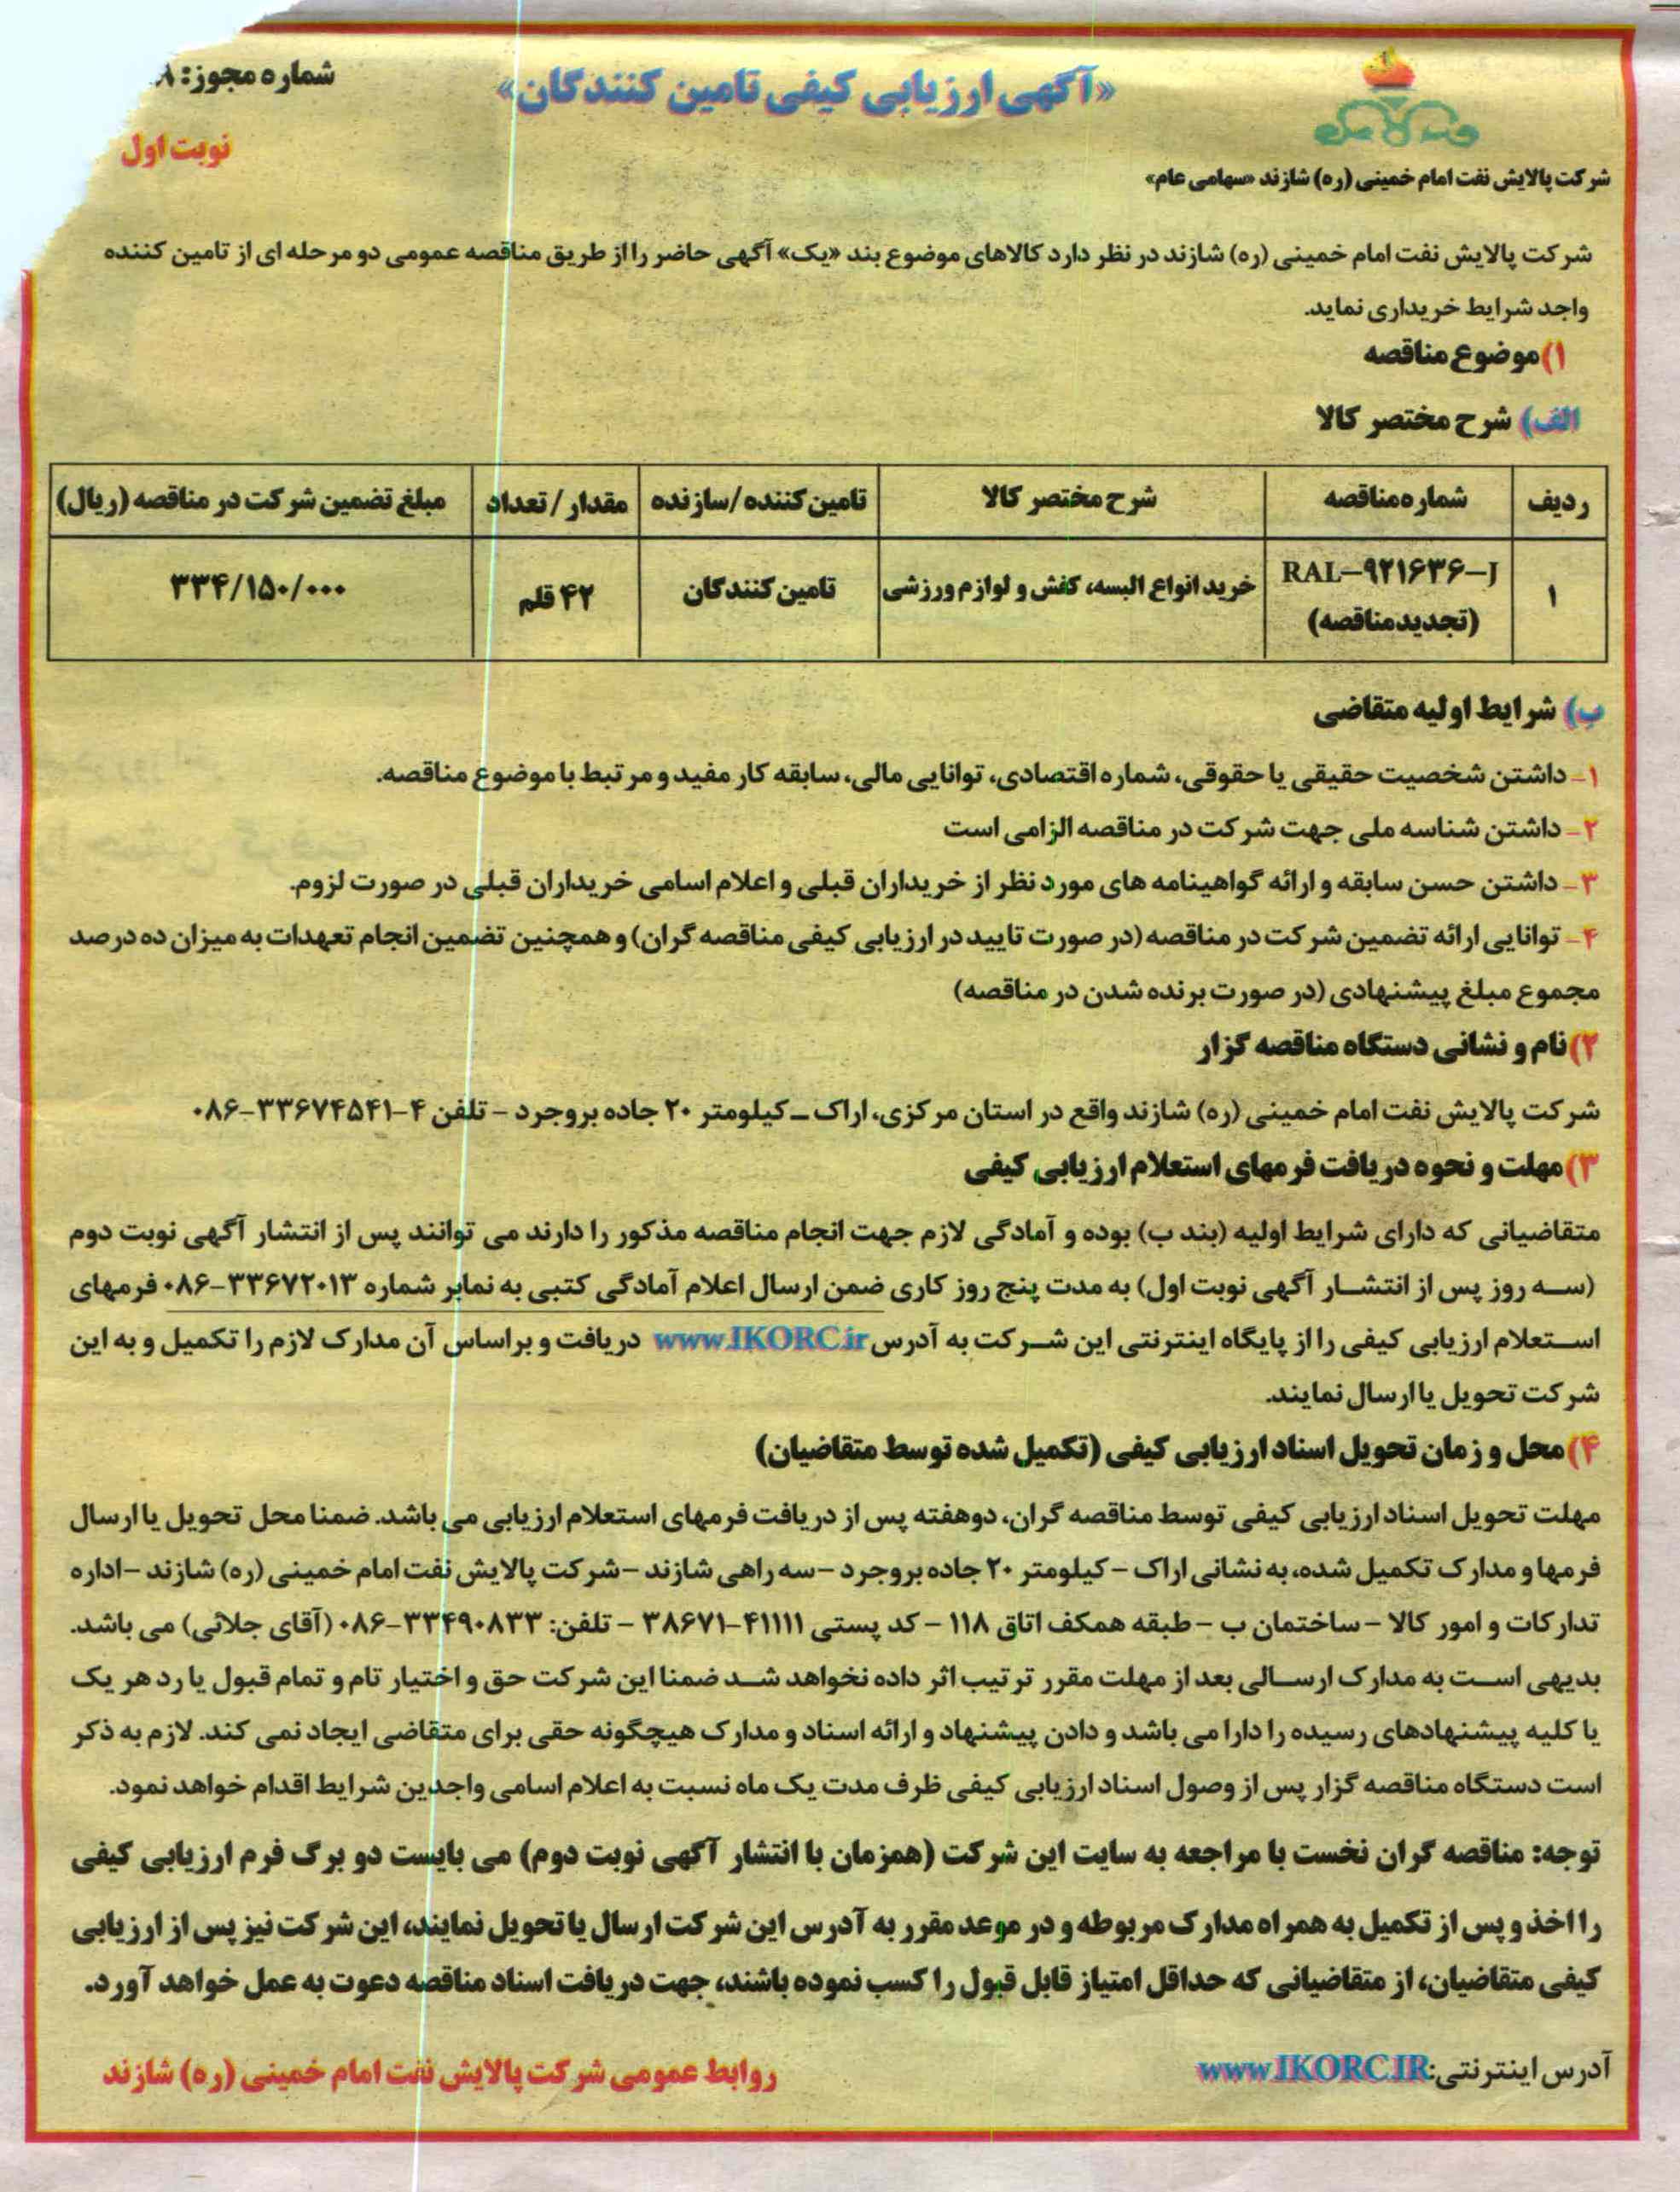 «آگهی ارزیابی کیفی تامین کنندگان»
شماره مجوز:
نوبت اول
شرکت پالایش نفت امام خمینی (ره) شازند «سهامی عام»
شرکت پالایش نفت امام خمینی (ره) شازند در نظر دارد کالاهای موضوع بند «یک» آگهی حاضر را از طریق مناقصه عمومی دو مرحله ای از تامین کننده
واجد شرایط خریداری نماید.
۱) موضوع مناقصه
الف) شرح مختصر کالا
ردیف شماره مناقصه شرح مختصر کالا تامین کننده/سازنده مقدار / تعداد مبلغ تضمین شرکت در مناقصه (ریال)
۱ RAL-۹۲۱۶۳۶-J (تجدید مناقصه) خرید انواع البسه، کفش و لوازم ورزشی تامین کنندگان ۴۲ قلم ۳۳۴/۱۵۰/۰۰۰
ب) شرایط اولیه متقاضی
۱- داشتن شخصیت حقیقی یا حقوقی، شماره اقتصادی، توانایی مالی، سابقه کار مفید و مرتبط با موضوع مناقصه.
۲- داشتن شناسه ملی جهت شرکت در مناقصه الزامی است
۳- داشتن حسن سابقه و ارائه گواهینامه های مورد نظر از خریداران قبلی و اعلام اسامی خریداران قبلی در صورت لزوم.
۴- توانایی ارائه تضمین شرکت در مناقصه (در صورت تایید در ارزیابی کیفی مناقصه گران) و همچنین تضمین انجام تعهدات به میزان ده درصد
مجموع مبلغ پیشنهادی (در صورت برنده شدن در مناقصه)
۲) نام و نشانی دستگاه مناقصه گزار
شرکت پالایش نفت امام خمینی (ره) شازند واقع در استان مرکزی، اراک ـ کیلومتر ۲۰ جاده بروجرد - تلفن ۴-۳۳۶۷۴۵۴۱-۰۸۶
۳) مهلت و نحوه دریافت فرمهای استعلام ارزیابی کیفی
متقاضیانی که دارای شرایط اولیه (بند ب) بوده و آمادگی لازم جهت انجام مناقصه مذکور را دارند می توانند پس از انتشار آگهی نوبت دوم
(سه روز پس از انتشار آگهی نوبت اول) به مدت پنج روز کاری ضمن ارسال اعلام آمادگی کتبی به نمابر شماره ۳۳۶۷۲۰۱۳-۰۸۶ فرمهای
استعلام ارزیابی کیفی را از پایگاه اینترنتی این شرکت به آدرس www.IKORC.ir دریافت و براساس آن مدارک لازم را تکمیل و به این
شرکت تحویل یا ارسال نمایند.
۴) محل و زمان تحویل اسناد ارزیابی کیفی (تکمیل شده توسط متقاضیان)
مهلت تحویل اسناد ارزیابی کیفی توسط مناقصه گران، دوهفته پس از دریافت فرمهای استعلام ارزیابی می باشد. ضمنا محل تحویل یا ارسال
فرمها و مدارک تکمیل شده، به نشانی اراک - کیلومتر ۲۰ جاده بروجرد - سه راهی شازند - شرکت پالایش نفت امام خمینی (ره) شازند - اداره
تدارکات و امور کالا - ساختمان ب - طبقه همکف اتاق ۱۱۸ - کد پستی ۴۱۱۱۱-۳۸۶۷۱ - تلفن: ۳۳۴۹۰۸۳۳-۰۸۶ (آقای جلائی) می باشد.
بدیهی است به مدارک ارسالی بعد از مهلت مقرر ترتیب اثر داده نخواهد شد ضمنا این شرکت حق و اختیار تام و تمام قبول یا رد هر یک
یا کلیه پیشنهادهای رسیده را دارا می باشد و دادن پیشنهاد و ارائه اسناد و مدارک هیچگونه حقی برای متقاضی ایجاد نمی کند. لازم به ذکر
است دستگاه مناقصه گزار پس از وصول اسناد ارزیابی کیفی ظرف مدت یک ماه نسبت به اعلام اسامی واجدین شرایط اقدام خواهد نمود.
توجه: مناقصه گران نخست با مراجعه به سایت این شرکت (همزمان با انتشار آگهی نوبت دوم) می بایست دو برگ فرم ارزیابی کیفی
را اخذ و پس از تکمیل به همراه مدارک مربوطه و در موعد مقرر به آدرس این شرکت ارسال یا تحویل نمایند، این شرکت نیز پس از ارزیابی
کیفی متقاضیان، از متقاضیانی که حداقل امتیاز قابل قبول را کسب نموده باشند، جهت دریافت اسناد مناقصه دعوت به عمل خواهد آورد.
آدرس اینترنتی: www.IKORC.IR
روابط عمومی شرکت پالایش نفت امام خمینی (ره) شازند